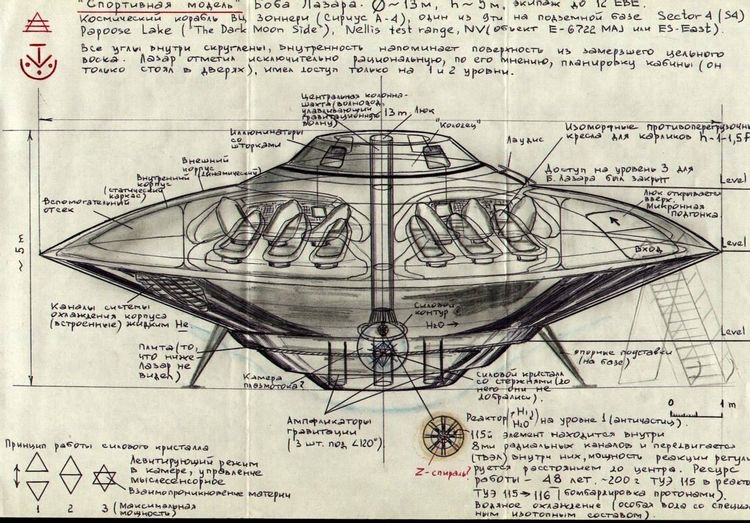 "Спортивная модель" Боба Лазара. Ø~13м, h~5м, экипаж до 12 ЕВЕ.
Космический корабль ВЦ Зоннери (Сириус А-4), один из 9ти на подземной базе Sector 4 (S4)
Papoose Lake ("The Dark Moon Side"), Nellis test range, NV (объект E-6722 MAJ или ES-East).
Все углы внутри скруглены, внутренность напоминает поверхность из замерзшего цельного
воска. Лазар отметил исключительно рациональную, по его мнению, планировку кабины (он
только стоял в дверях), имел доступ только на 1 и 2 уровни.
Центральная колонна-
шахта/волновод,
улавливающий
гравитационную
волну)
13m
Люк
"Колодец"
Иллюминаторы
со
шторками
Лаудис
Изоморфные противоперегрузочные
кресла для карликов h-1-1,5
Внешний
корпус
(динамический)
Внутренний
корпус
(статический
каркас)
Вспомогательный
отсек
Доступ на уровень 3 для
Б. Лазара был закрыт
Level
Люк открывается
вверх.
Микронная
подгонка.
Level
Вход
~5м
Каналы системы
охлаждения корпуса
(встроенные) жидким He.
Силовой
контур
H2O →
Level
Плита (то,
что ниже
Лазар не
видел)
Камера
плазмотока?
опорные подставки
(на базе)
Силовой кристалл
со стержнями (до
него они не
добрались).
Ампфликаторы
гравитации
(3 шт. под ∠120°)
0 1m
Z-спираль?
Реактор (+H1, H2O) на уровне 1 (античастиц).
115й элемент находится внутри
8ми радиальных каналов и передвигается
(твэл) внутри них, мощность реакции регули-
руется расстоянием до центра. Ресурс
работы - 48 лет. ~200 г ТУЭ 115 в реакто
ТУЭ 115 → 116 (бомбардировка протонами).
Водяное охлаждение (особая вода со специа
ным изотопным составом).
Принцип работы силового кристалла
Левитирующий режим
в камере, управление
мыслесенсорное
Взаимопроникновение материи
1 2 3 (Максимальная
мощность)